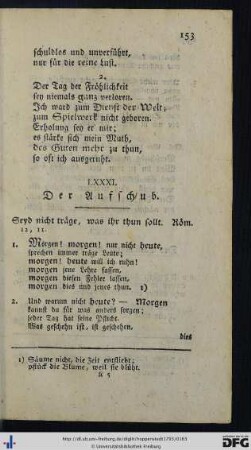 153
schuldlos und unverführt,
nur für die reine Lust.
2.
Der Tag der Fröhlichkeit
sey niemals ganz verloren.
Ich ward zum Dienst der Welt,
zum Spielwerk nicht geboren.
Erholung sey er mir;
es stärke sich mein Muth,
des Guten mehr zu thun,
so oft ich ausgeruht.
LXXXI.
Der Aufschub.
Seyd nicht träge, was ihr thun sollt. Röm.
12, 11.
1. Morgen! morgen! nur nicht heute,
sprechen immer träge Leute;
morgen! heute will ich ruhn!
morgen jene Lehre fassen,
morgen diesen Fehler lassen,
morgen dies und jenes thun. 1)
2. Und warum nicht heute? — Morgen
kannst du für was anders sorgen;
jeder Tag hat seine Pflicht.
Was geschehn ist, ist geschehen,
dies
1) Säume nicht, die Zeit entflieht;
pflück die Blume, weil sie blüht.
K 5
http://dl.ub.uni-freiburg.de/diglit/rappenstadt1793/0163
© Universitätsbibliothek Freiburg